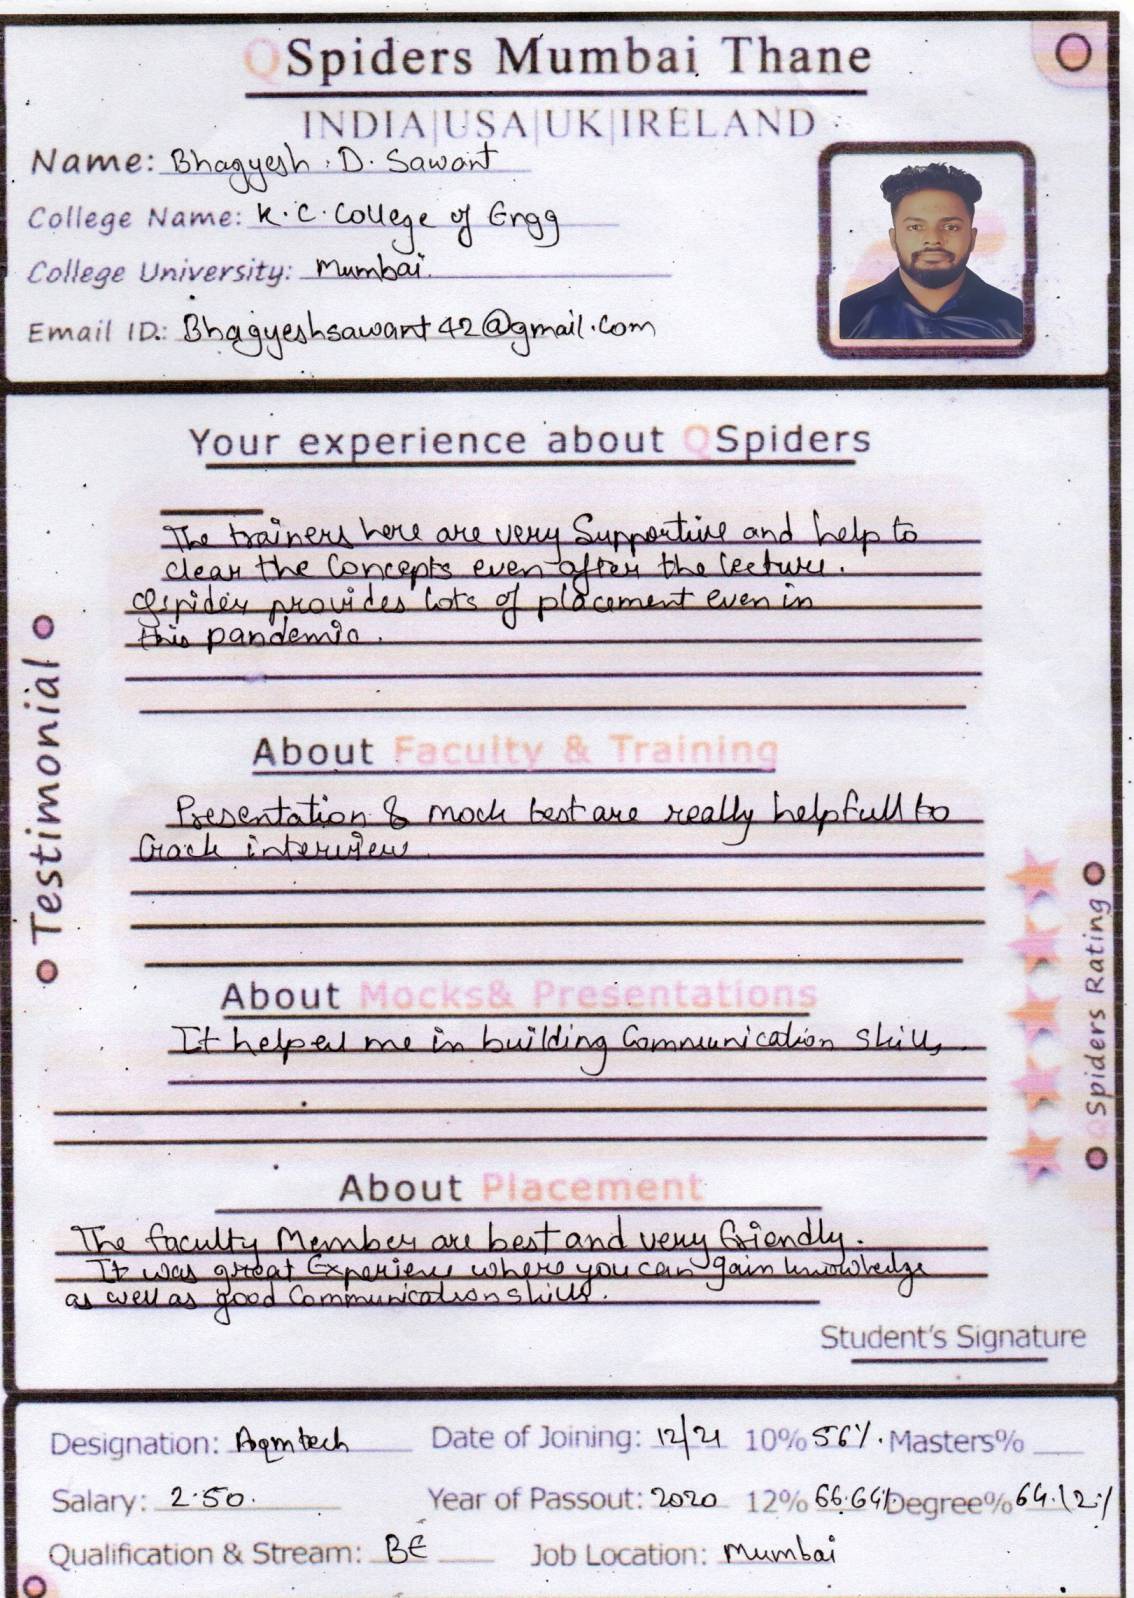 QSpiders Mumbai Thane
INDIA|USA|UK|IRELAND
Name: Bhagyesh . D. Sawant
College Name: K. C. College of Engg
College University: Mumbai.
Email ID.: Bhagyeshsawant42@gmail.com
Your experience about QSpiders
The trainers here are very Supportive and help to
clear the Concepts even after the lecture.
Qspider provides lots of placement even in
this pandemic.
About Faculty & Training
Presentation & mock test are really helpfull to
Crack interview.
About Mocks& Presentations
It helped me in building Communication skills.
About Placement
The faculty Member are best and very friendly.
It was great Experience where you can gain knowledge
as well as good Communication skills.
Student's Signature
Testimonial
QSpiders Rating
Designation: Aqmtech Date of Joining: 12/21 10% 56%. Masters%
Salary: 2.50. Year of Passout: 2020 12% 66.64% Degree% 64.12%
Qualification & Stream: BE Job Location: Mumbai